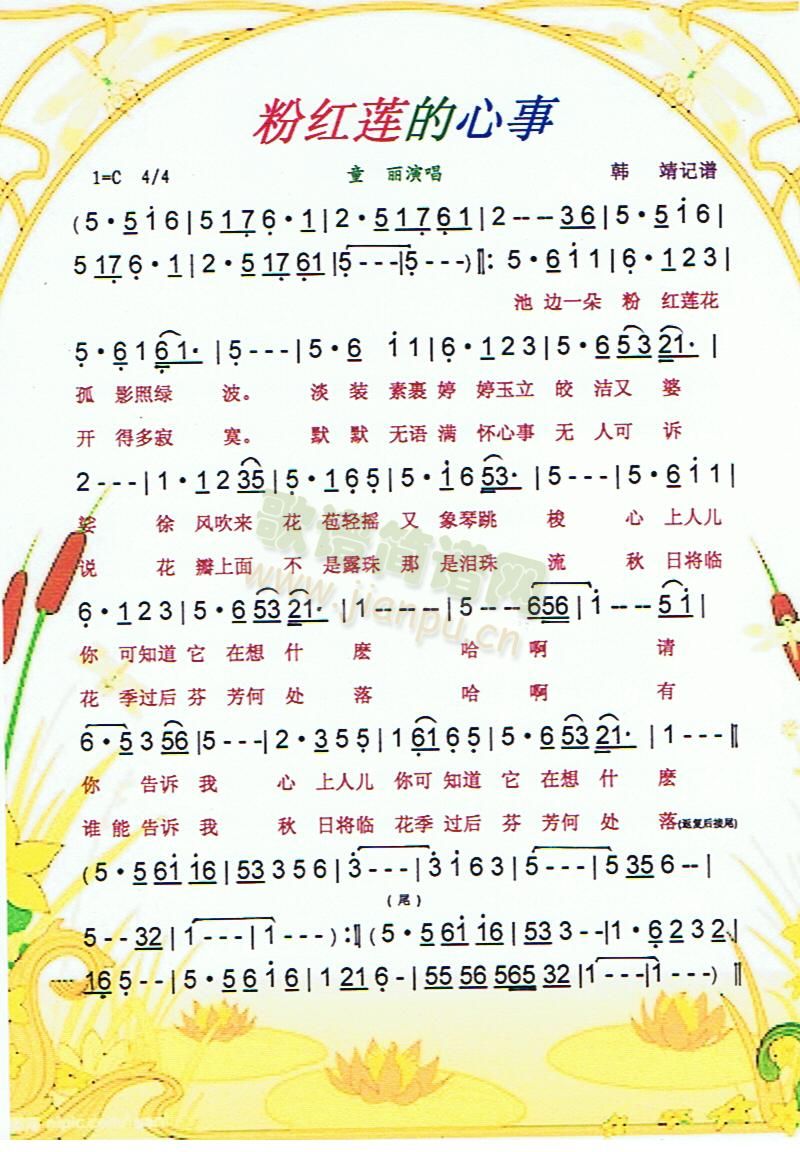 粉红莲的心事
1=C 4/4 童 丽演唱 韩 靖记谱
(5·5i6|5176·1|2·51761|2---36|5·5i6|
5176·1|2·51761|5---|5---)‖:5·6i1|6·123|
池 边一朵 粉 红莲花
5·6161·|5---|5·6 i1|6·123|5·65321·|
孤 影照绿 波。 淡 装 素裹 婷 婷玉立 皎 洁又 婆
开 得多寂 寞。 默 默 无语 满 怀心事 无 人可 诉
2---|1·1235|5·165|5·i653·|5---|5·6i1|
娑 徐 风吹来 花 苞轻摇 又 象琴跳 梭 心 上人儿
说 花 瓣上面 不 是露珠 那 是泪珠 流 秋 日将临
歌谱简谱网
www.jianpu.cn
6·123|5·65321·|1----|5---656|i----5i|
你 可知道 它 在想 什 麽 哈 啊 请
花 季过后 芬 芳何 处 落 哈 啊 有
6·5356|5---|2·355|16165|5·65321·|1---‖
你 告诉 我 心 上人儿 你可 知道 它 在想 什 麽
谁 能 告诉 我 秋 日将临 花季 过后 芬 芳何 处 落(返复后接尾)
(5·561i16|53356|3---|3i63|5---|5356--|
(尾)
5--32|1---|1---):‖(5·561i16|533--|1·6232|
165--|5·56i6|1216-|55565653 2|1---|1---)‖